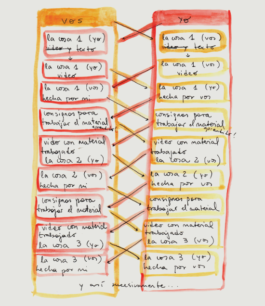 vos
la cosa 1 (yo)
video y texto
la cosa 1 (yo)
video
la cosa 1 (vos)
hecha por mi
consignas para
trabajar el material
video con material
trabajado
la cosa 2 (yo)
la cosa 2 (vos)
hecha por mi
consignas para
trabajar el material
video con material
trabajado
la cosa 3 (yo)
la cosa 3 (vos)
hecha por mi
yo
la cosa 1 (vos)
video y texto
la cosa 1 (vos)
video
la cosa 1 (yo)
hecha por vos
consignas para
trabajar el material
video con material
trabajado
la cosa 2 (vos)
la cosa 2 (yo)
hecha por vos
consignas para
trabajar el material
video con material
trabajado
la cosa 3 (vos)
la cosa 3 (yo)
hecha por vos
y así sucesivamente...